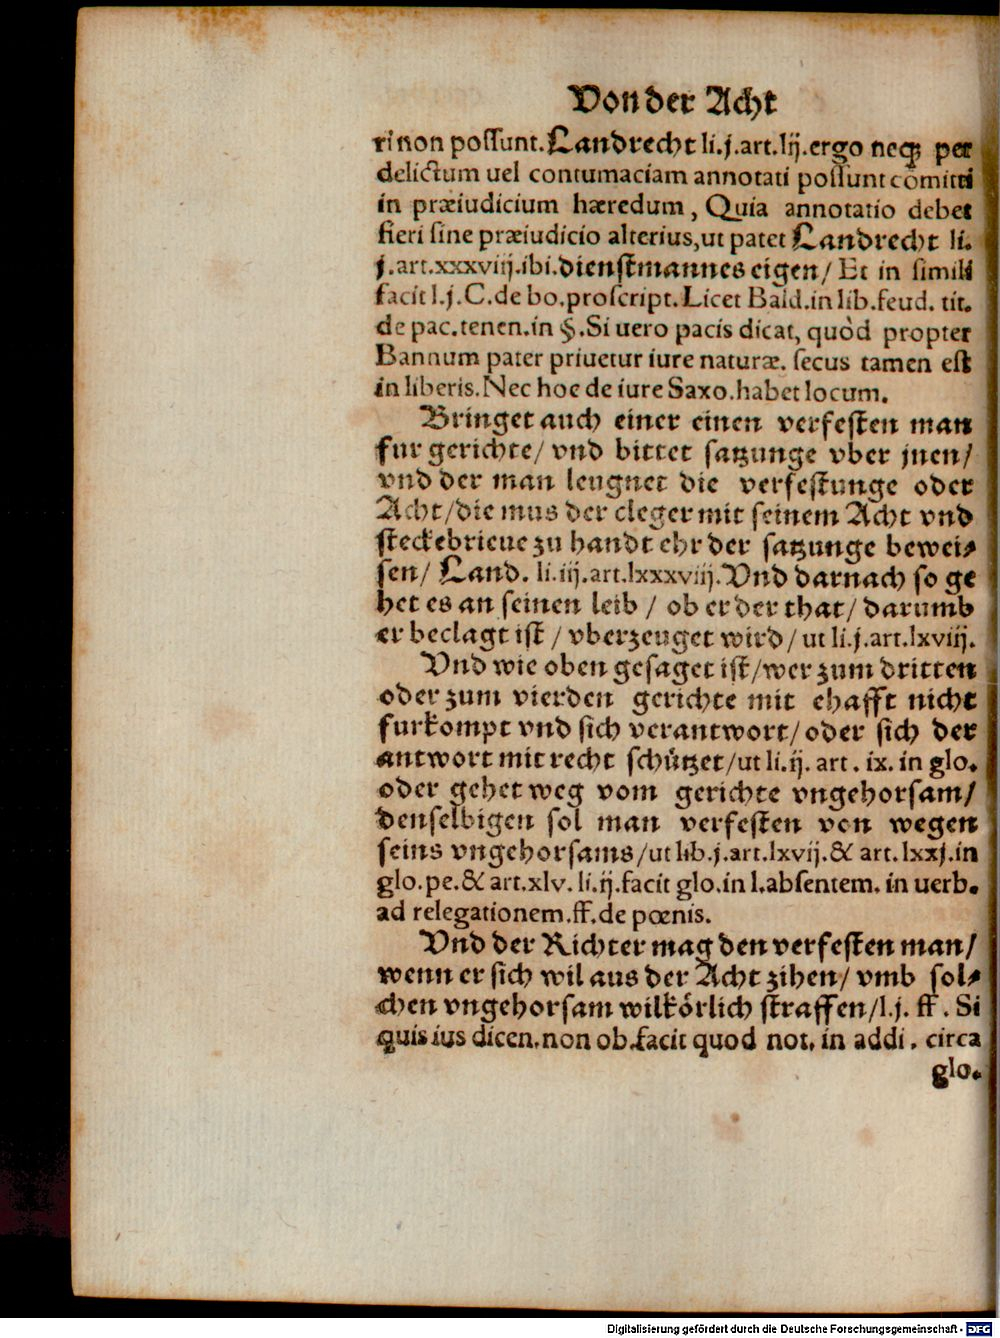 Von der Acht
ri non possunt. Landrecht li.j.art.lij.ergo neq; per
delictum uel contumaciam annotati possunt cōmitti
in præiudicium hæredum, Quia annotatio debet
fieri sine præiudicio alterius, ut patet Landrecht li.
j.art.xxxviij.ibi.dienstmannes eigen/ Et in simili
facit l.j.C.de bo.proscript. Licet Bald.in lib.feud. tit.
de pac.tenen.in §.Si uero pacis dicat, quòd propter
Bannum pater priuetur iure naturæ. secus tamen est
in liberis. Nec hoc de iure Saxo.habet locum.
Bringet auch einer einen verfesten man
fur gerichte/ vnd bittet satzunge vber jnen/
vnd der man leugnet die verfestunge oder
Acht/die mus der cleger mit seinem Acht vnd
steckebrieue zu handt ehr der satzunge bewei⸗
sen/ Land. li.iij.art.lxxxviij. Vnd darnach so ge
het es an seinen leib / ob er der that/ darumb
er beclagt ist / vberzeuget wird/ ut li.j.art.lxviij.
Vnd wie oben gesaget ist/wer zum dritten
oder zum vierden gerichte mit ehafft nicht
furkompt vnd sich verantwort/ oder sich der
antwort mit recht schützet/ut li.ij. art. ix. in glo.
oder gehet weg vom gerichte vngehorsam/
denselbigen sol man verfesten von wegen
seins vngehorsams/ut lib.j.art.lxvij.& art.lxxj.in
glo.pe.& art.xlv. li.ij.facit glo.in l.absentem. in uerb.
ad relegationem.ff.de pœnis.
Vnd der Richter mag den verfesten man/
wenn er sich wil aus der Acht zihen/ vmb sol⸗
chen vngehorsam wilkörlich straffen/l.j. ff. Si
quis ius dicen.non ob.facit quod not. in addi. circa
glo.
Digitalisierung gefördert durch die Deutsche Forschungsgemeinschaft - DFG